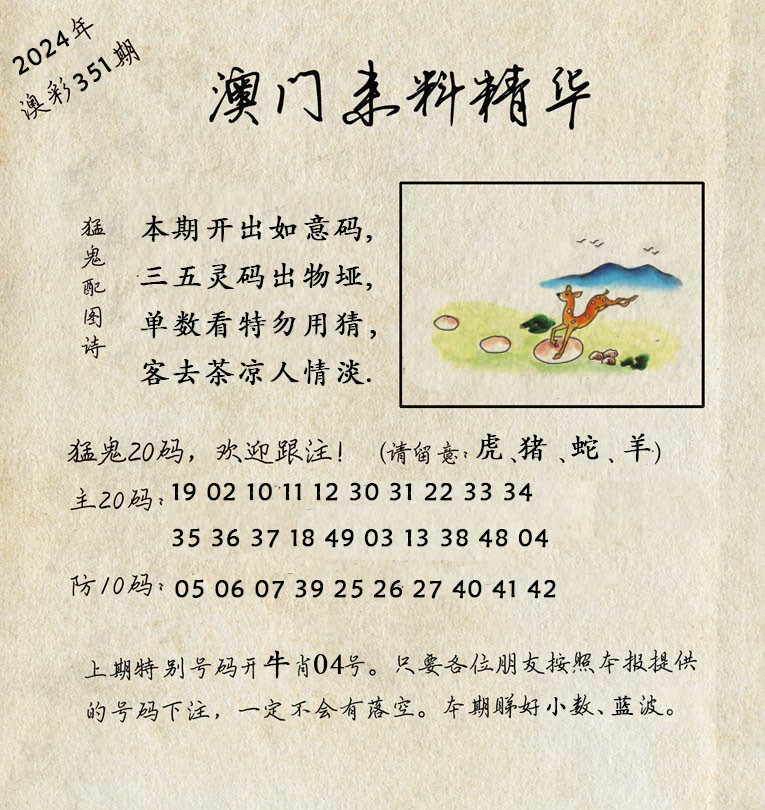 2024年
澳彩351期
澳门来料精华
猛鬼配图诗
本期开出如意码,
三五灵码出物垭,
单数看特勿用猜,
客去茶凉人情淡.
猛鬼20码，欢迎跟注！（请留意：虎、猪、蛇、羊）
主20码：19 02 10 11 12 30 31 22 33 34
35 36 37 18 49 03 13 38 48 04
防10码：05 06 07 39 25 26 27 40 41 42
上期特别号码开牛肖04号。只要各位朋友按照本报提供
的号码下注，一定不会有落空。本期睇好小数、蓝波。